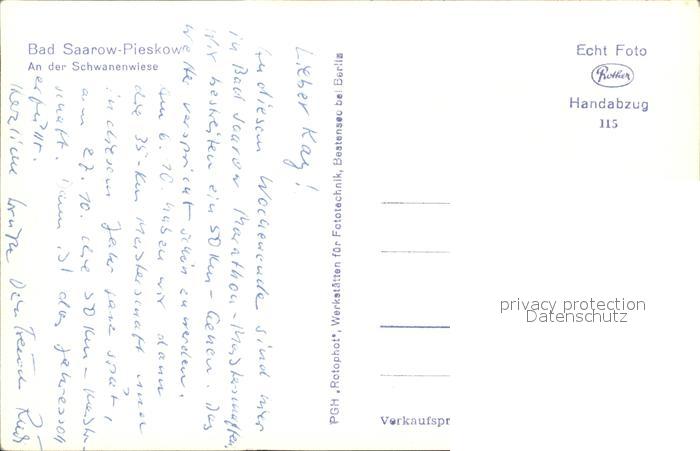 Bad Saarow-Pieskow
An der Schwanenwiese
Lieber Kay!
An diesem Wochenende sind hier
in Bad Saarow Marathon-Meisterschaften.
Wir bestreiten ein 50 km-Gehen. Das
Wetter verspricht schön zu werden.
Am 6. 10. haben wir dann
die 35-km Meisterschaft und
in diesem Jahr ganz spät,
am 27. 10. die 50 km-Meister-
schaft. Dann ist das
erfüllt.
Herzliche Grüße Dein
PGH „Rotophot“, Werkstätten für Fototechnik, Bestensee bei Berlin
Echt Foto
Rother
Handabzug
115
privacy protection
Datenschutz
Verkaufspr